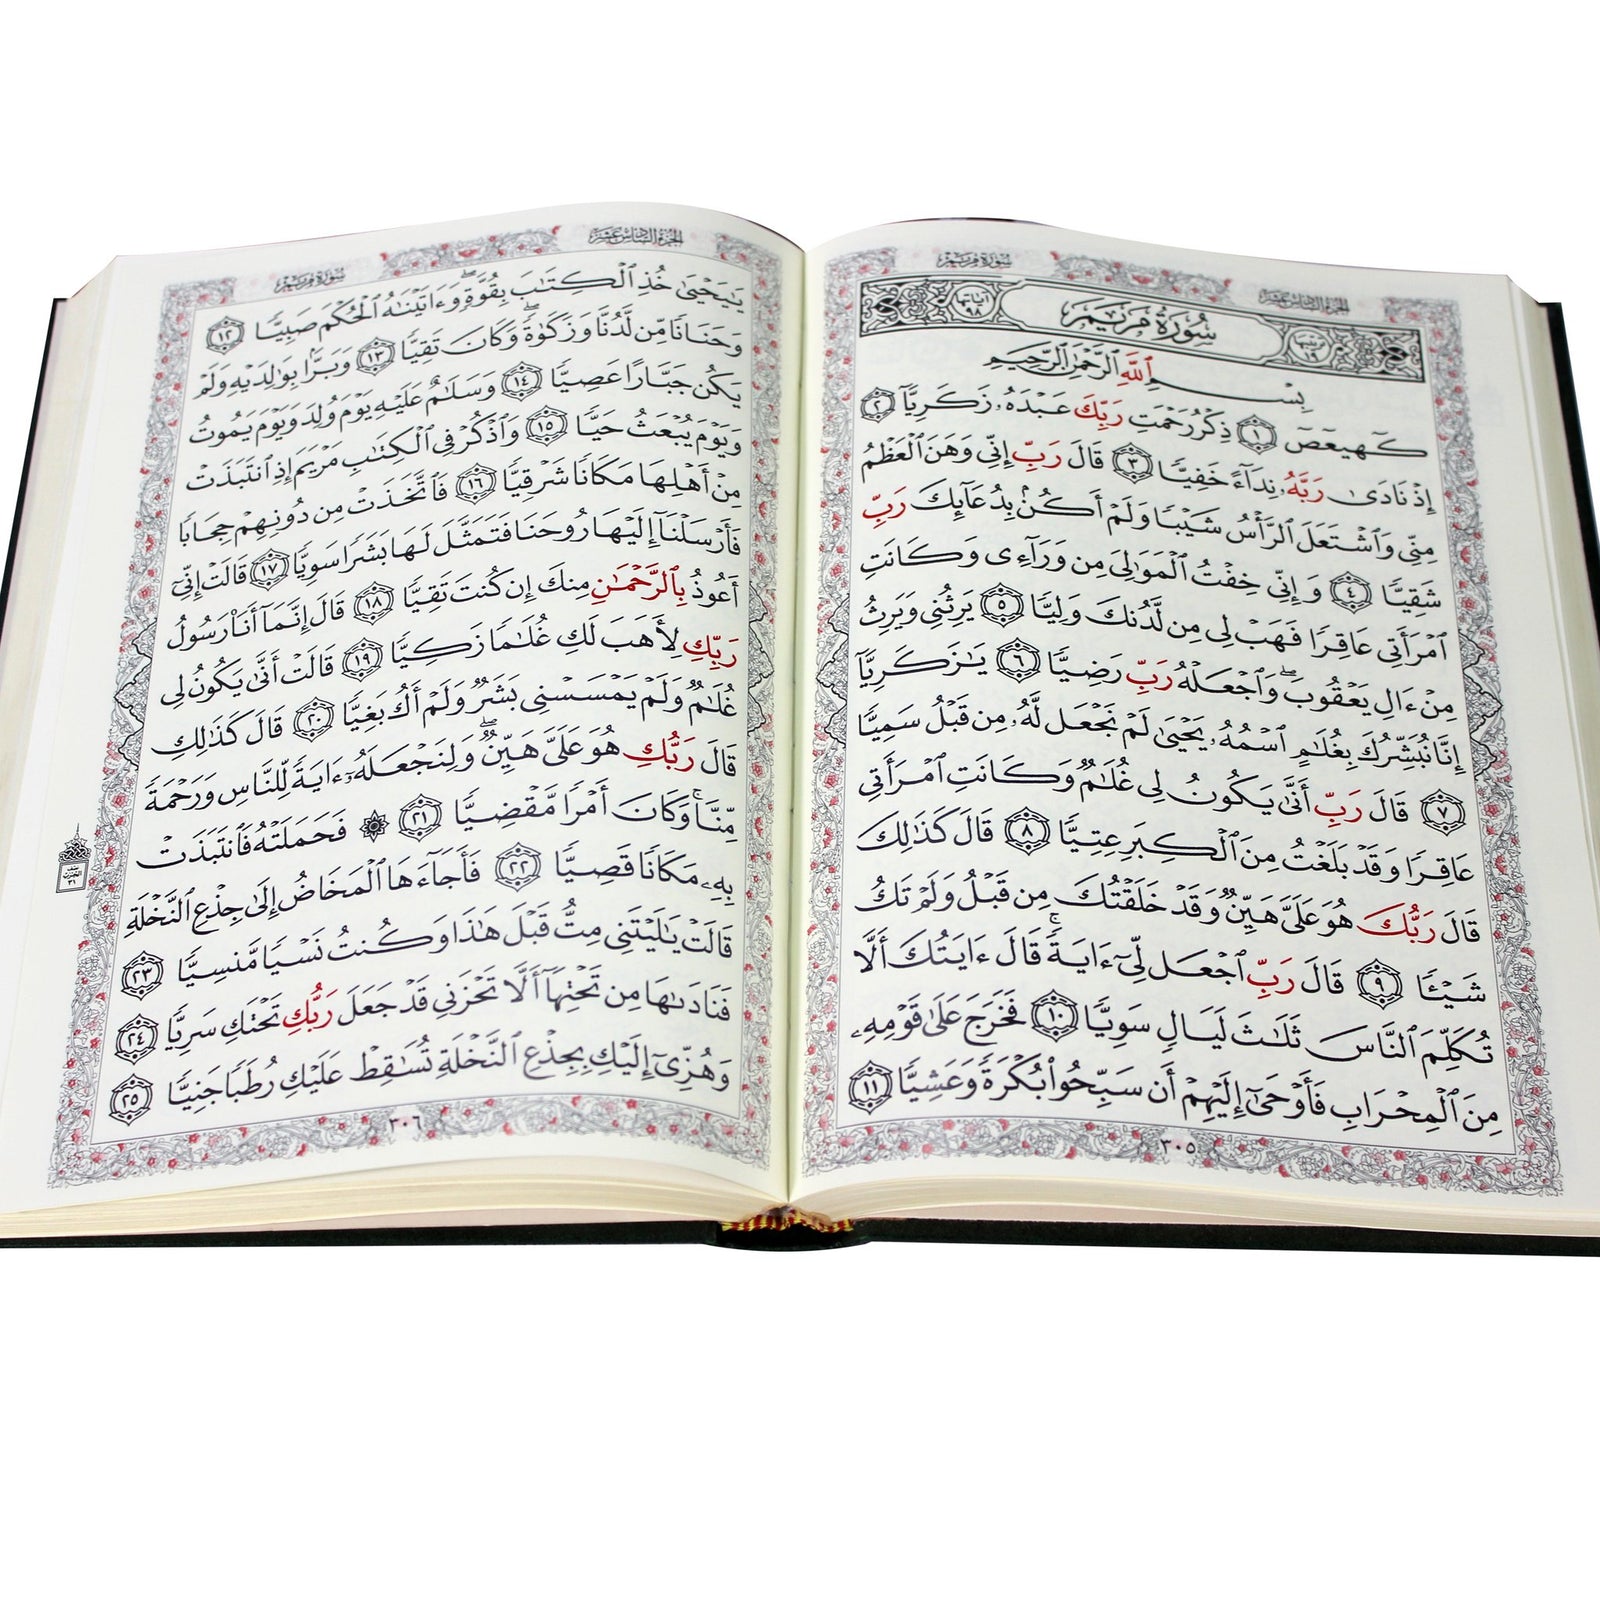 سورة مريم
الجزء السادس عشر
آياتها ٩٨
سُورَةُ مَرْيَمَ
ترتيبها ١٩
بِسْمِ ٱللَّهِ ٱلرَّحْمَٰنِ ٱلرَّحِيمِ
كٓهيعٓصٓ ١ ذِكْرُ رَحْمَتِ رَبِّكَ عَبْدَهُۥ زَكَرِيَّآ ٢
إِذْ نَادَىٰ رَبَّهُۥ نِدَآءً خَفِيًّا ٣ قَالَ رَبِّ إِنِّى وَهَنَ ٱلْعَظْمُ
مِنِّى وَٱشْتَعَلَ ٱلرَّأْسُ شَيْبًا وَلَمْ أَكُنۢ بِدُعَآئِكَ رَبِّ
شَقِيًّا ٤ وَإِنِّى خِفْتُ ٱلْمَوَٰلِىَ مِن وَرَآءِى وَكَانَتِ
ٱمْرَأَتِى عَاقِرًا فَهَبْ لِى مِن لَّدُنكَ وَلِيًّا ٥ يَرِثُنِى وَيَرِثُ
مِنْ ءَالِ يَعْقُوبَ ۖ وَٱجْعَلْهُ رَبِّ رَضِيًّا ٦ يَٰزَكَرِيَّآ
إِنَّا نُبَشِّرُكَ بِغُلَٰمٍ ٱسْمُهُۥ يَحْيَىٰ لَمْ نَجْعَل لَّهُۥ مِن قَبْلُ سَمِيًّا
٧ قَالَ رَبِّ أَنَّىٰ يَكُونُ لِى غُلَٰمٌ وَكَانَتِ ٱمْرَأَتِى
عَاقِرًا وَقَدْ بَلَغْتُ مِنَ ٱلْكِبَرِ عِتِيًّا ٨ قَالَ كَذَٰلِكَ
قَالَ رَبُّكَ هُوَ عَلَىَّ هَيِّنٌ وَقَدْ خَلَقْتُكَ مِن قَبْلُ وَلَمْ تَكُ
شَيْـًٔا ٩ قَالَ رَبِّ ٱجْعَل لِّىٓ ءَايَةً ۚ قَالَ ءَايَتُكَ أَلَّا
تُكَلِّمَ ٱلنَّاسَ ثَلَٰثَ لَيَالٍ سَوِيًّا ١٠ فَخَرَجَ عَلَىٰ قَوْمِهِۦ
مِنَ ٱلْمِحْرَابِ فَأَوْحَىٰٓ إِلَيْهِمْ أَن سَبِّحُوا۟ بُكْرَةً وَعَشِيًّا ١١
٣٠٥
الجزء السادس عشر
سورة مريم
يَٰيَحْيَىٰ خُذِ ٱلْكِتَٰبَ بِقُوَّةٍ ۖ وَءَاتَيْنَٰهُ ٱلْحُكْمَ صَبِيًّا ١٢
وَحَنَانًا مِّن لَّدُنَّا وَزَكَوٰةً ۖ وَكَانَ تَقِيًّا ١٣ وَبَرًّۢا بِوَٰلِدَيْهِ وَلَمْ
يَكُن جَبَّارًا عَصِيًّا ١٤ وَسَلَٰمٌ عَلَيْهِ يَوْمَ وُلِدَ وَيَوْمَ يَمُوتُ
وَيَوْمَ يُبْعَثُ حَيًّا ١٥ وَٱذْكُرْ فِى ٱلْكِتَٰبِ مَرْيَمَ إِذِ ٱنتَبَذَتْ
مِنْ أَهْلِهَا مَكَانًا شَرْقِيًّا ١٦ فَٱتَّخَذَتْ مِن دُونِهِمْ حِجَابًا
فَأَرْسَلْنَآ إِلَيْهَا رُوحَنَا فَتَمَثَّلَ لَهَا بَشَرًا سَوِيًّا ١٧ قَالَتْ إِنِّىٓ
أَعُوذُ بِٱلرَّحْمَٰنِ مِنكَ إِن كُنتَ تَقِيًّا ١٨ قَالَ إِنَّمَآ أَنَا۠ رَسُولُ
رَبِّكِ لِأَهَبَ لَكِ غُلَٰمًا زَكِيًّا ١٩ قَالَتْ أَنَّىٰ يَكُونُ لِى
غُلَٰمٌ وَلَمْ يَمْسَسْنِى بَشَرٌ وَلَمْ أَكُ بَغِيًّا ٢٠ قَالَ كَذَٰلِكِ
قَالَ رَبُّكِ هُوَ عَلَىَّ هَيِّنٌ ۖ وَلِنَجْعَلَهُۥٓ ءَايَةً لِّلنَّاسِ وَرَحْمَةً
مِّنَّا ۚ وَكَانَ أَمْرًا مَّقْضِيًّا ٢١ ۞ فَحَمَلَتْهُ فَٱنتَبَذَتْ
بِهِۦ مَكَانًا قَصِيًّا ٢٢ فَأَجَآءَهَا ٱلْمَخَاضُ إِلَىٰ جِذْعِ ٱلنَّخْلَةِ
قَالَتْ يَٰلَيْتَنِى مِتُّ قَبْلَ هَٰذَا وَكُنتُ نَسْيًا مَّنسِيًّا ٢٣
فَنَادَىٰهَا مِن تَحْتِهَآ أَلَّا تَحْزَنِى قَدْ جَعَلَ رَبُّكِ تَحْتَكِ سَرِيًّا ٢٤
وَهُزِّىٓ إِلَيْكِ بِجِذْعِ ٱلنَّخْلَةِ تُسَٰقِطْ عَلَيْكِ رُطَبًا جَنِيًّا ٢٥
٣٠٦
نصف
الحزب
٣١